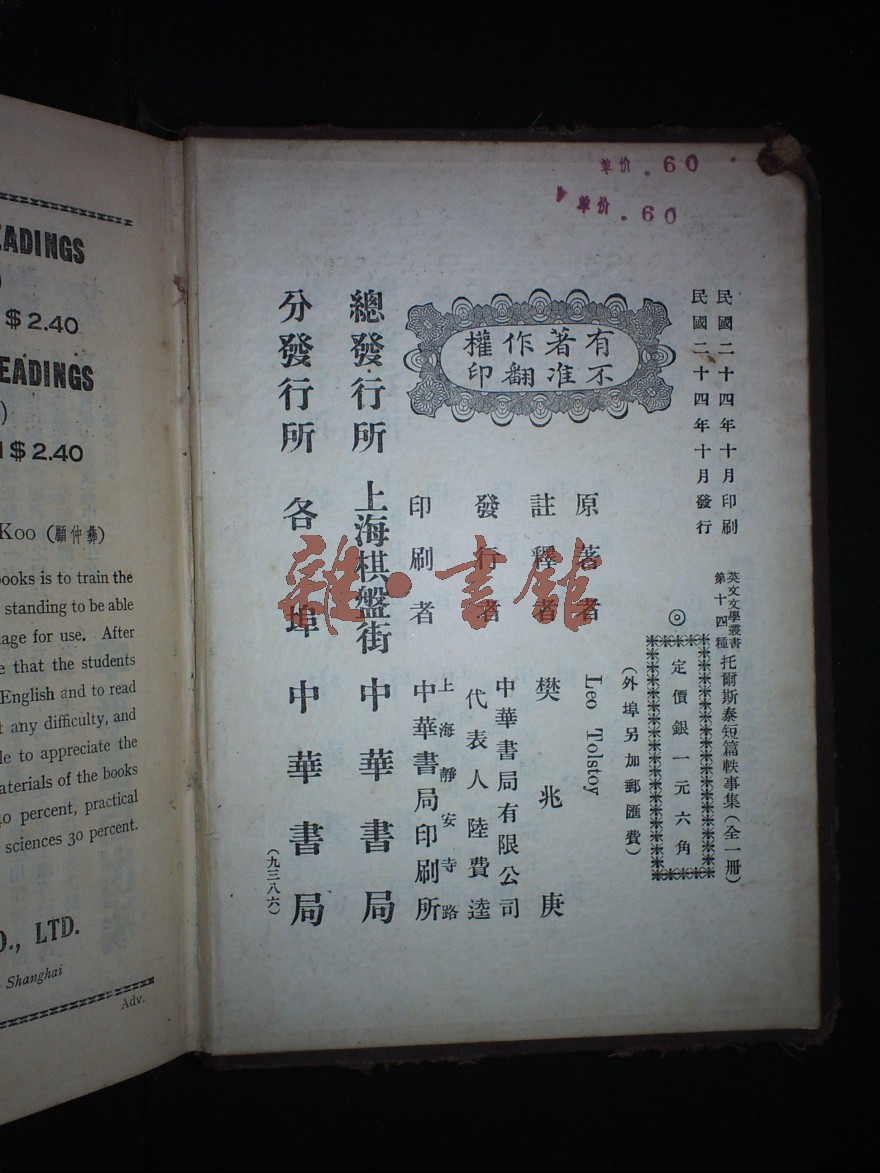 EADINGS
)
$ 2.40
EADINGS
)
$ 2.40
Koo (顧仲彝)
ooks is to train the
standing to be able
age for use. After
e that the students
English and to read
t any difficulty, and
le to appreciate the
aterials of the books
40 percent, practical
sciences 30 percent.
O., LTD.
Shanghai
Adv.
单价 .60
单价 .60
民國二十四年十月印刷
民國二十四年十月發行
英文文學叢書
第十四種
托爾斯泰短篇軼事集(全一冊)
◎定價銀一元六角
(外埠另加郵匯費)
有著作權
不准翻印
原著者 Leo Tolstoy
註釋者 樊兆庚
發行者 中華書局有限公司
代表人陸費逵
印刷者 上海靜安寺路
中華書局印刷所
總發行所 上海棋盤街 中華書局
分發行所 各埠 中華書局
(九三八六)
雜·書館